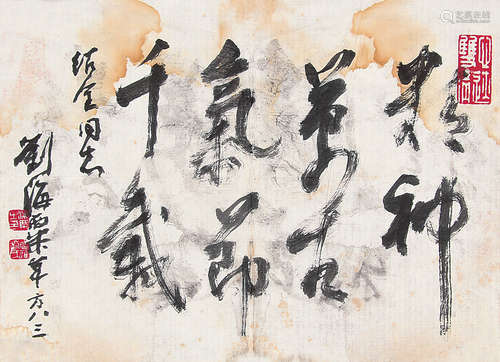 精神
萬古
氣節
千載
紹全同志
劉海粟年方八三